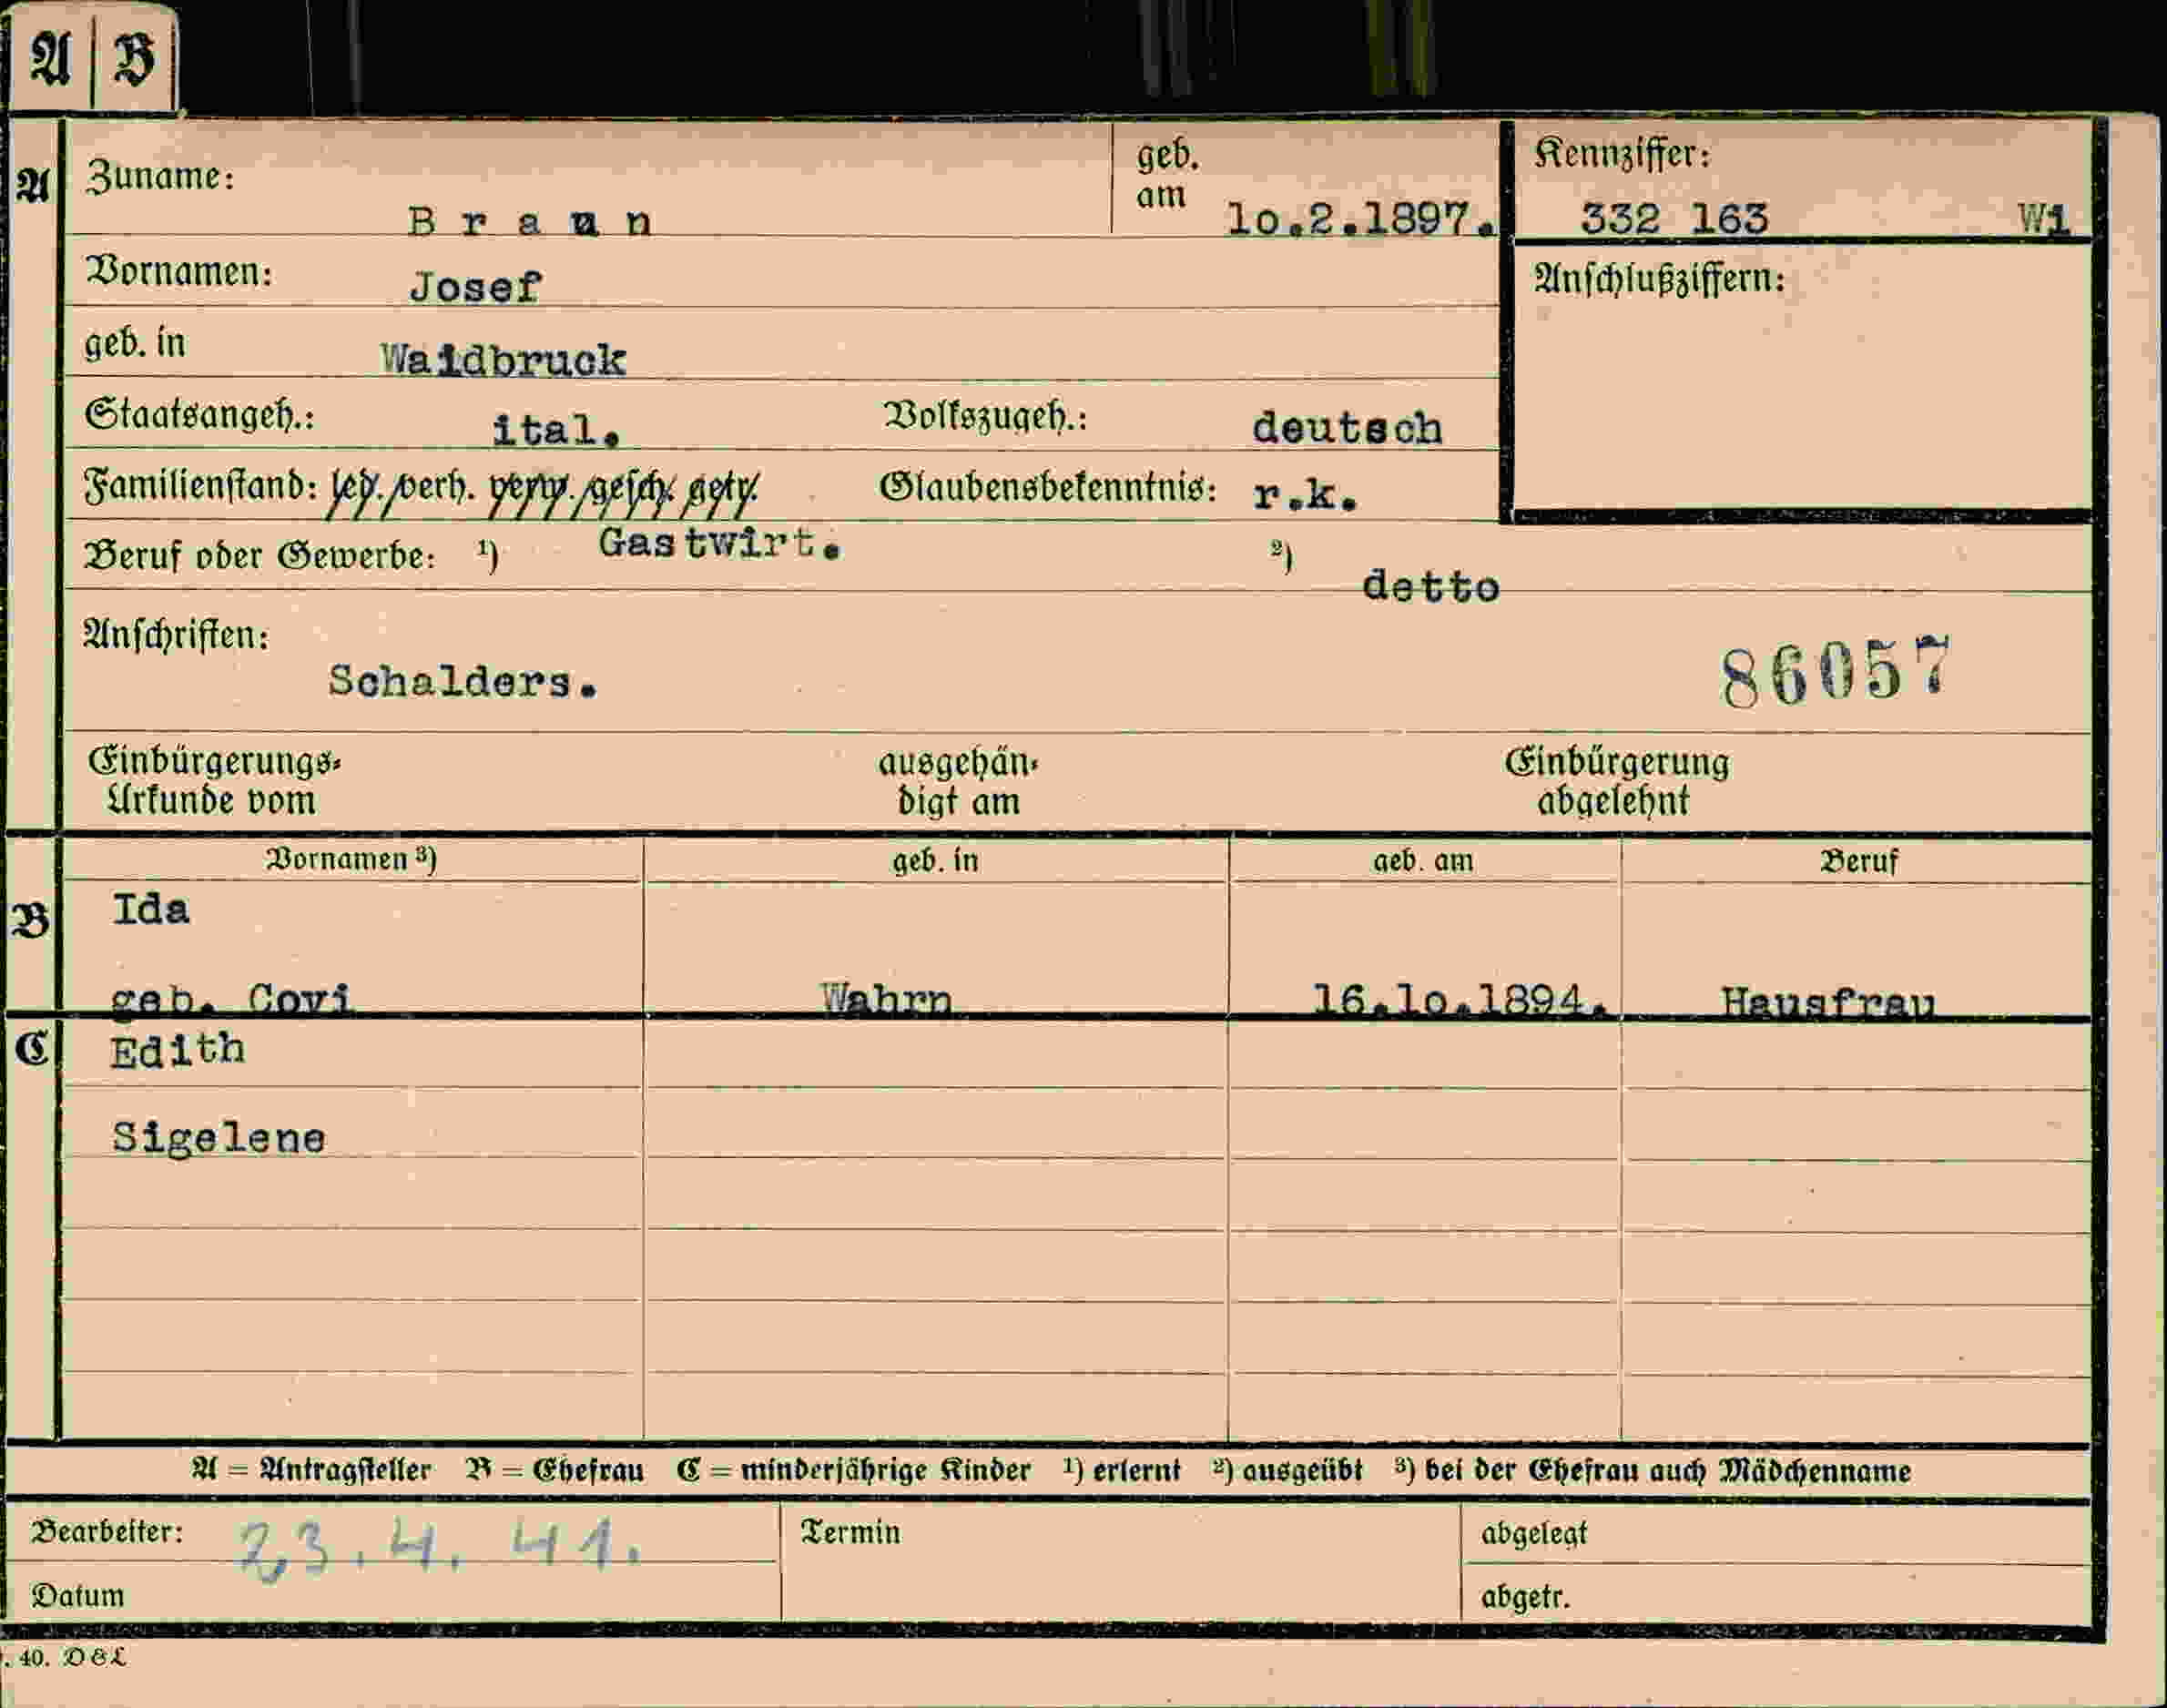 A B
A Zuname: geb. am Kennziffer:
Braun 10.2.1897. 332 163 Wi
Vornamen: Josef Anschlußziffern:
geb. in Waidbruck
Staatsangeh.: ital. Volkszugeh.: deutsch
Familienstand: led./verh. verw./gesch./getr. Glaubensbekenntnis: r.k.
Beruf oder Gewerbe: ¹) Gastwirt. ²) detto
Anschriften:
Schalders. 86057
Einbürgerungs- ausgehän- Einbürgerung
Urkunde vom digt am abgelehnt
Vornamen ³) geb. in geb. am Beruf
B Ida
geb. Covi Wahrn 16.10.1894. Hausfrau
C Edith
Sigelene
A = Antragsteller B = Ehefrau C = minderjährige Kinder ¹) erlernt ²) ausgeübt ³) bei der Ehefrau auch Mädchenname
Bearbeiter: 23.4.41. Termin abgelegt
Datum abgetr.
. 40. D&L